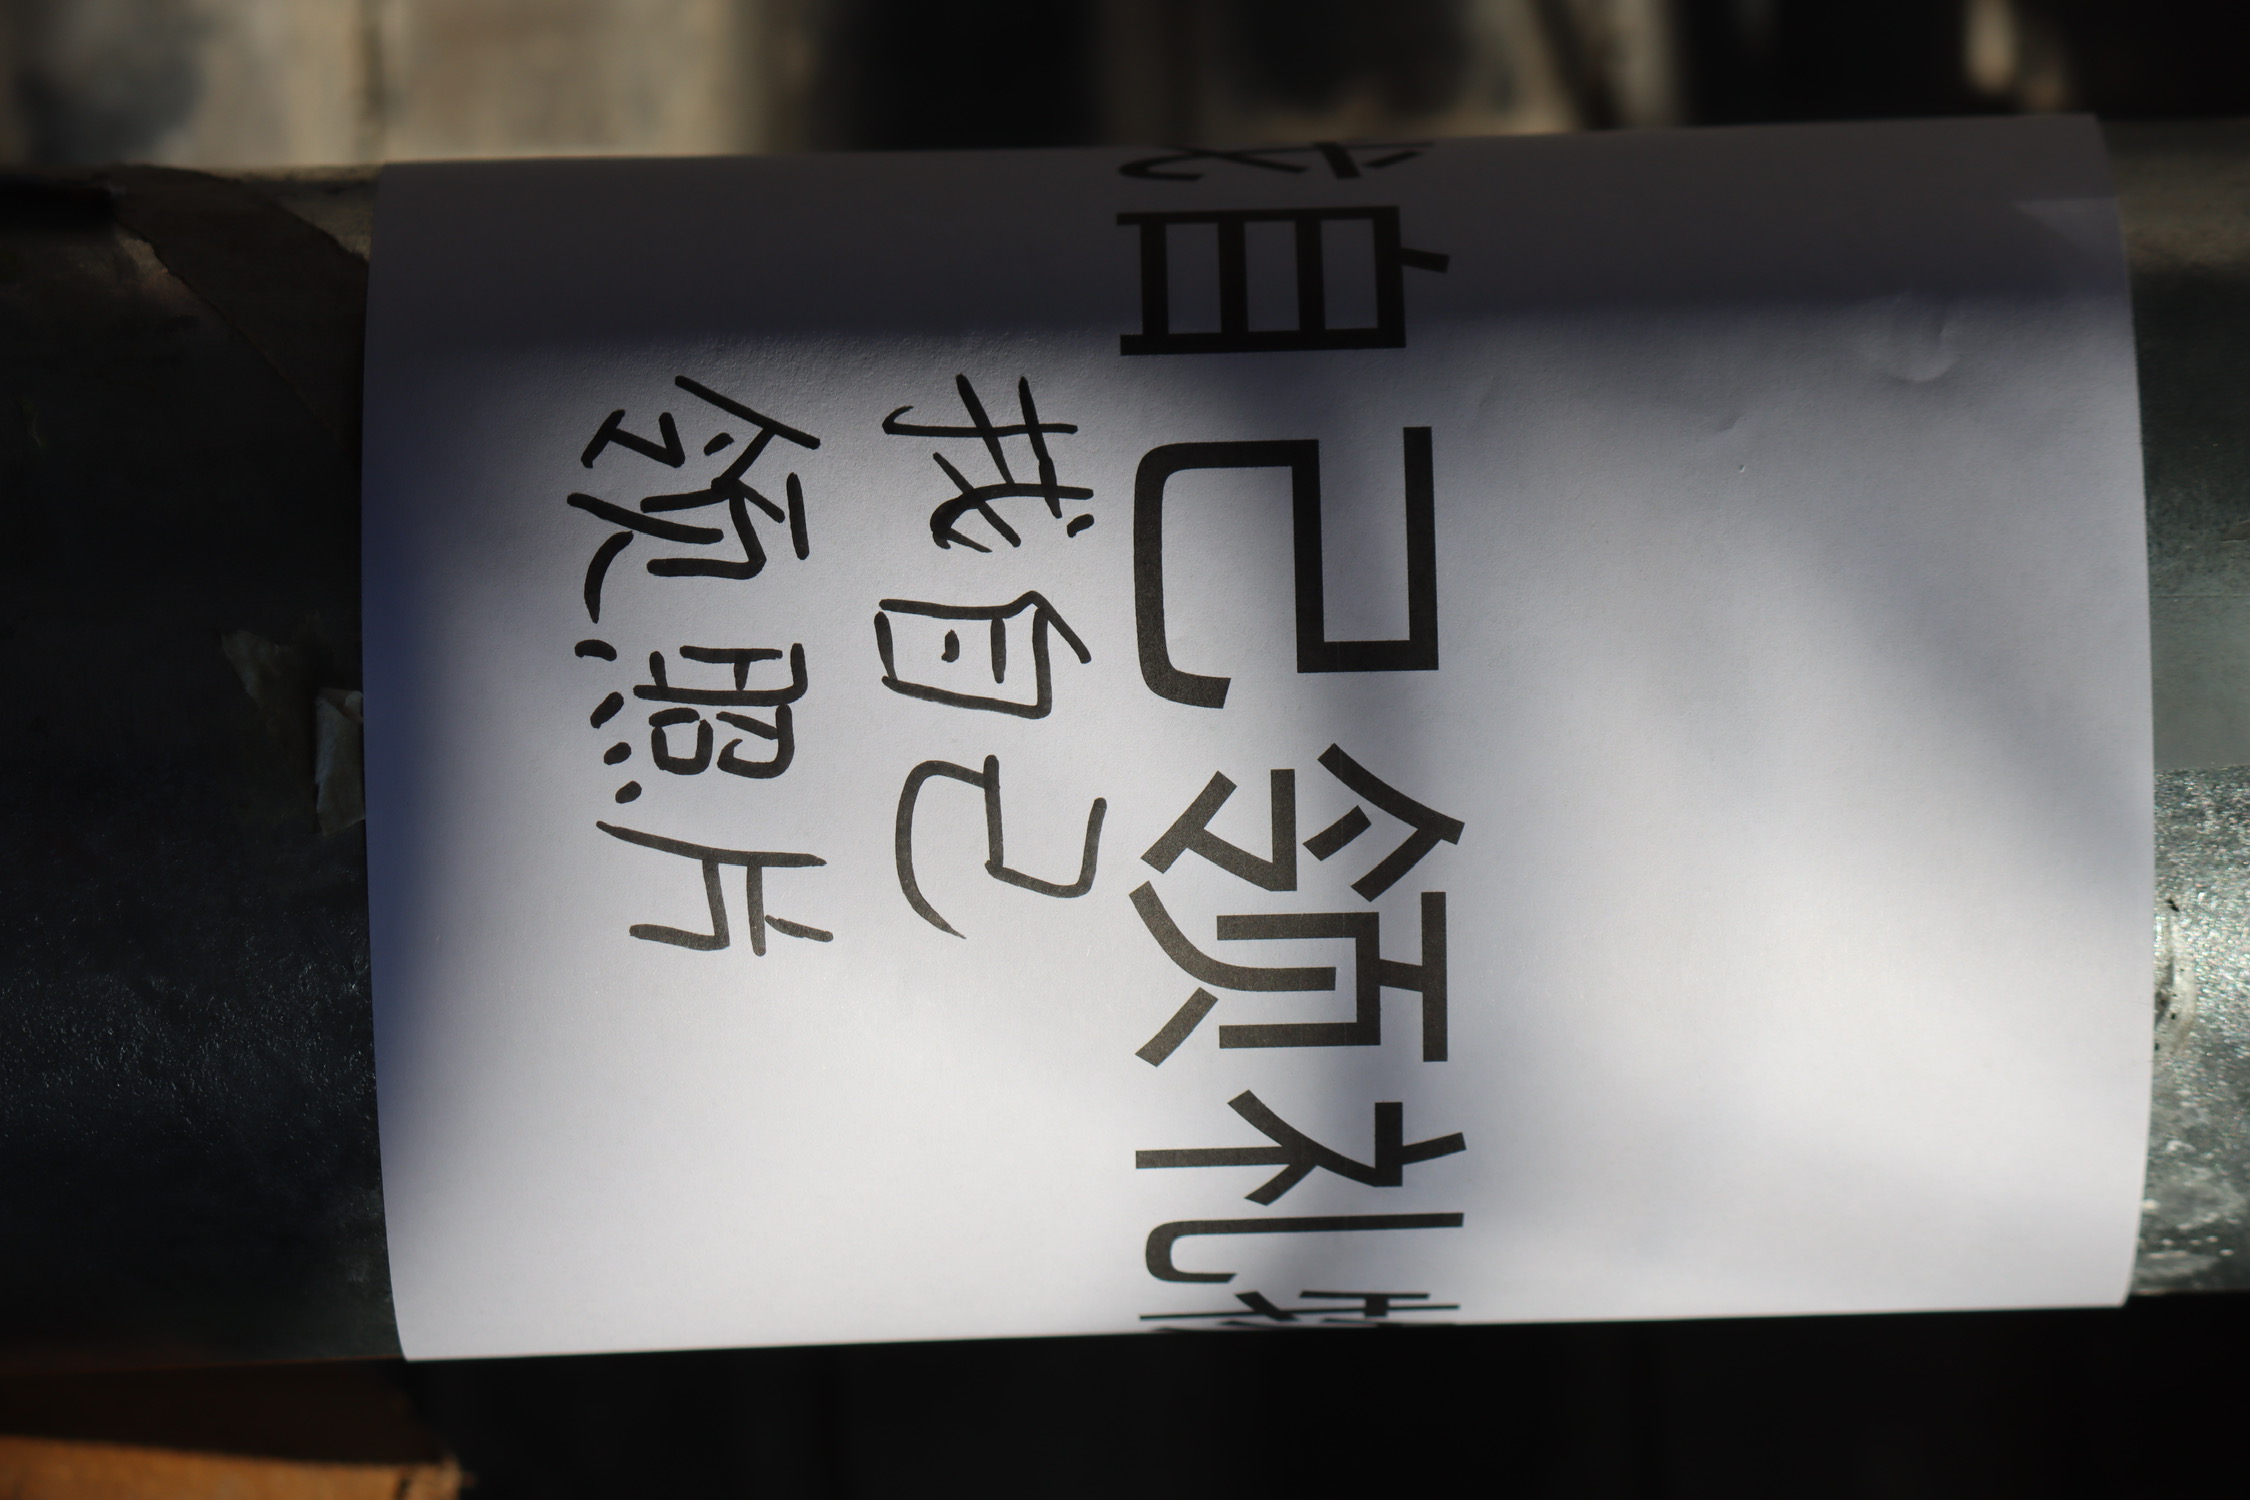 自己领礼
我自己
领照片